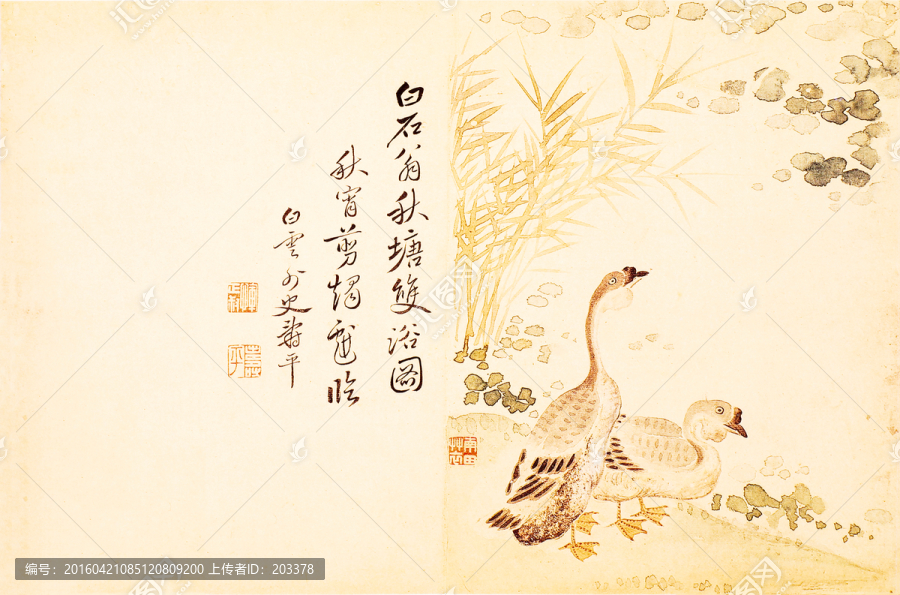 白石翁秋塘雙浴圖
秋宵剪燭戲臨
白雲外史壽平
編号：20160421085120809200 上传者ID：203378